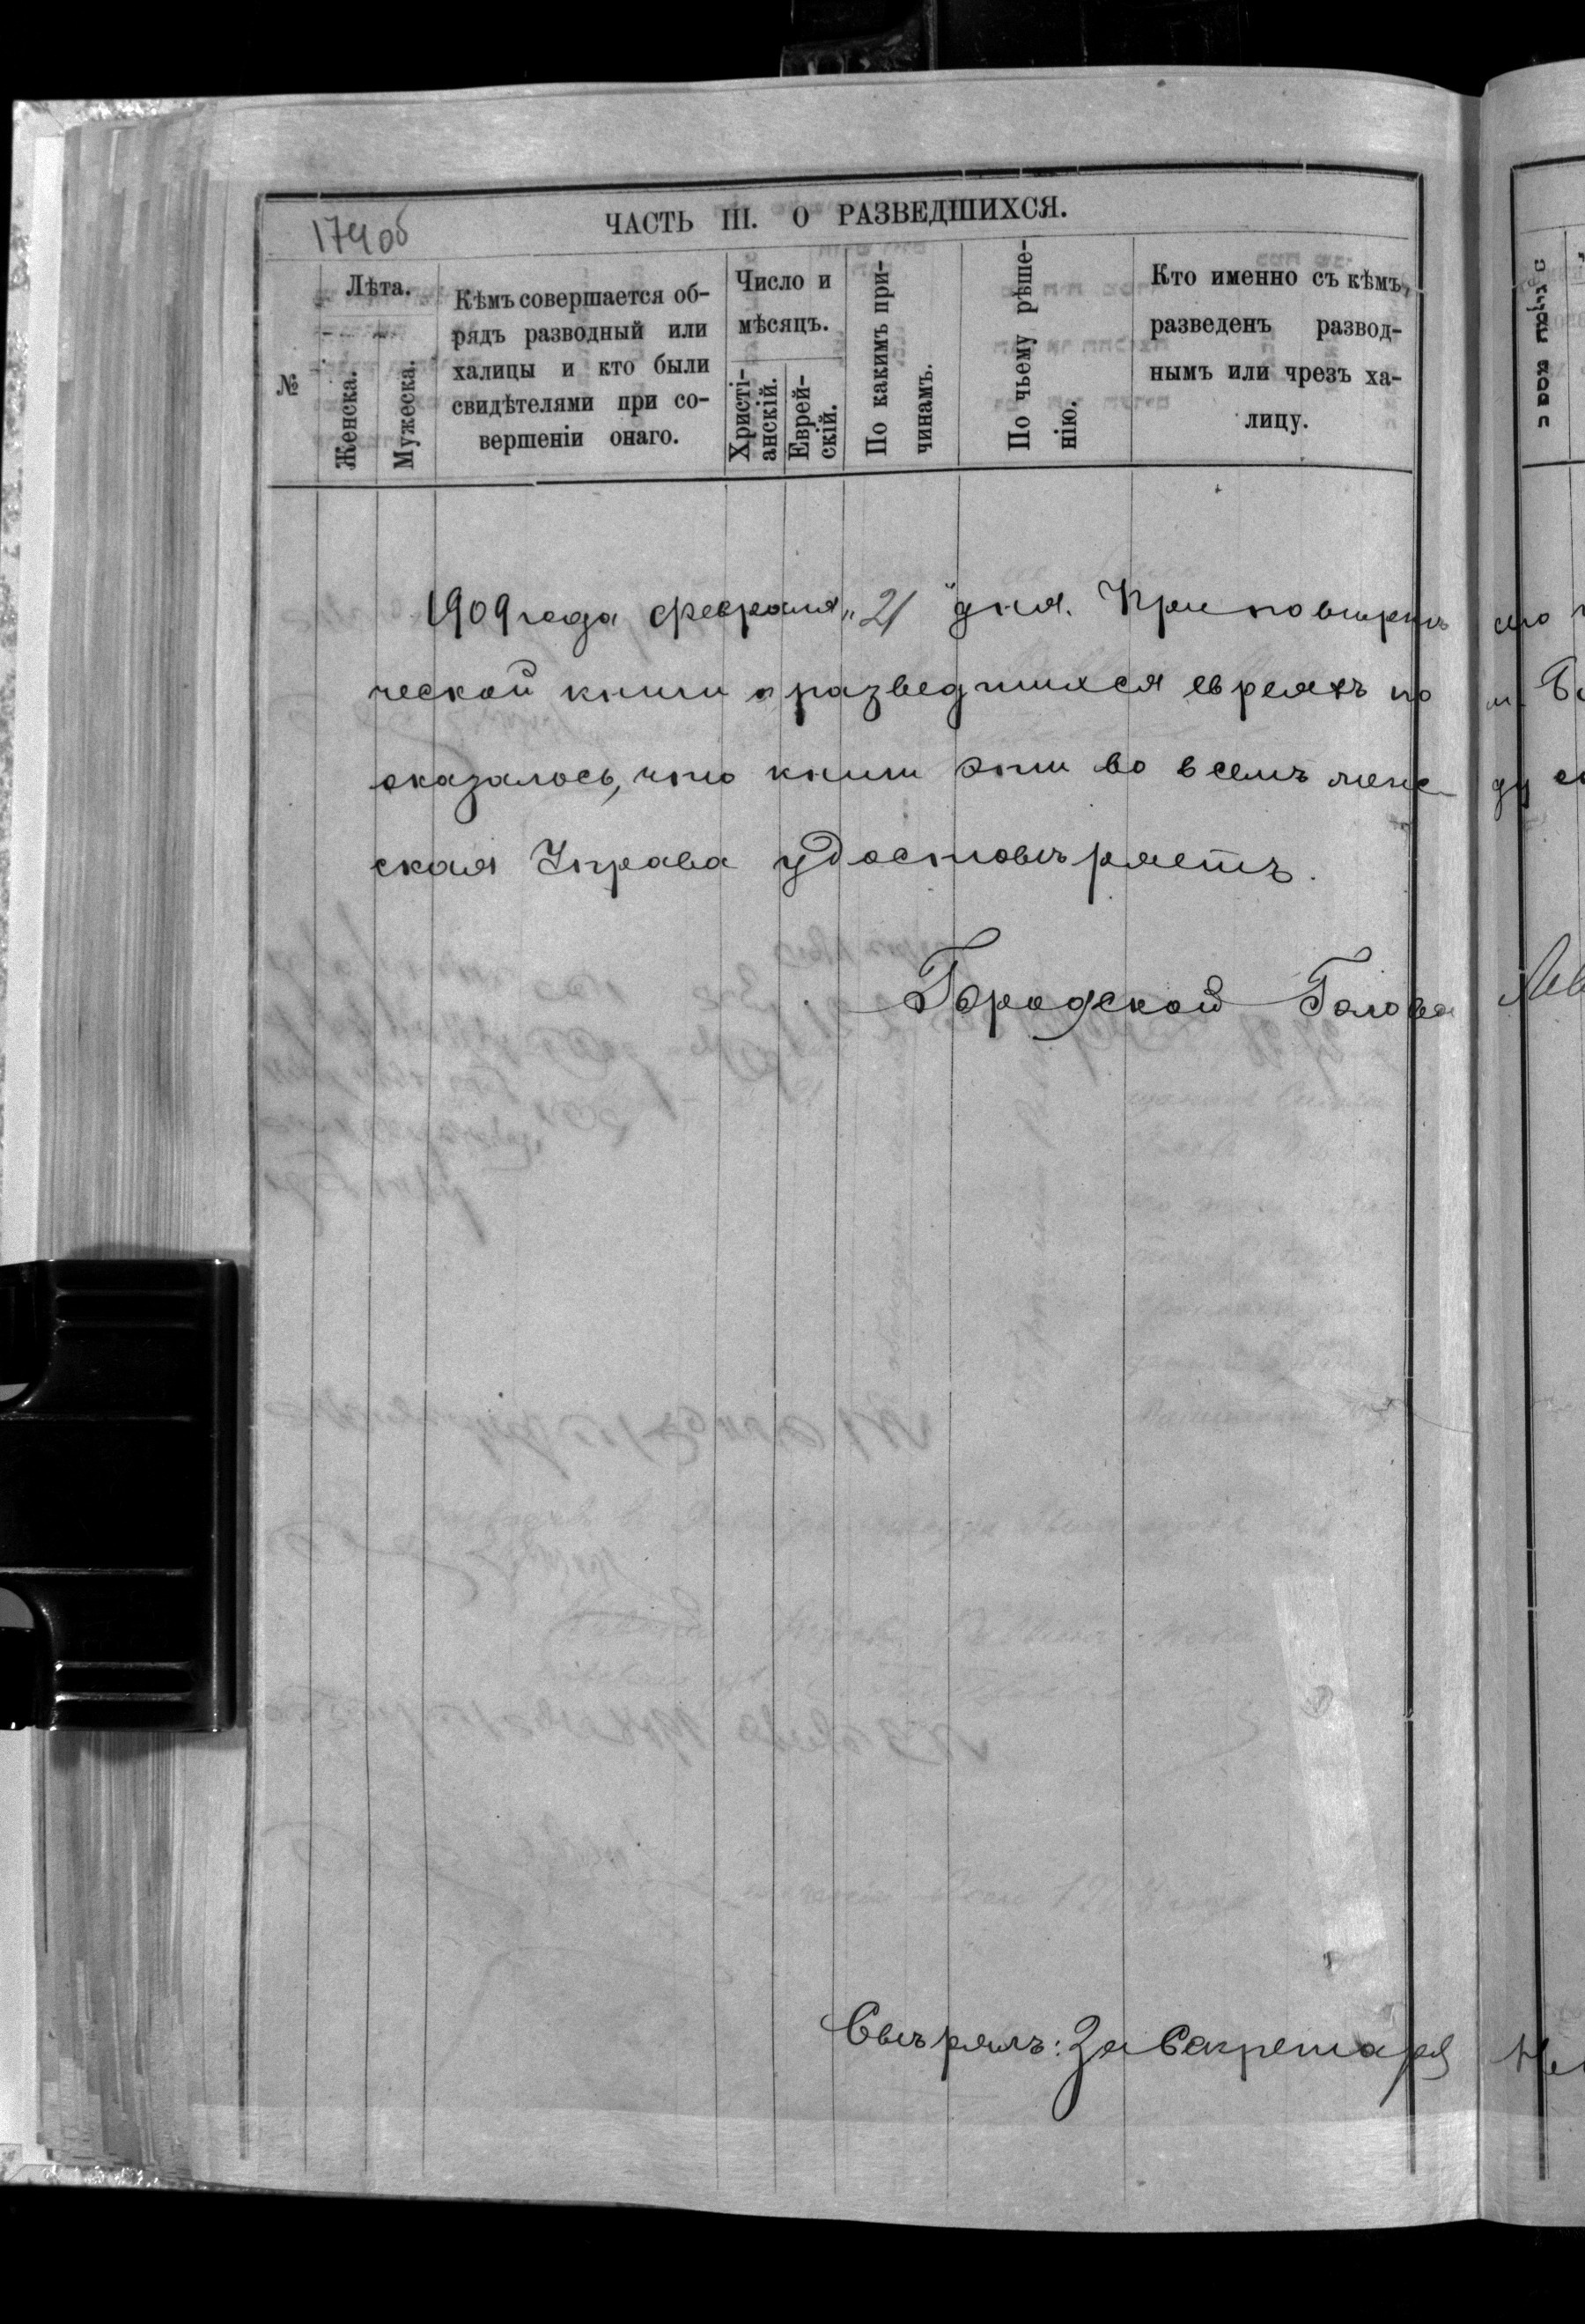 174об
ЧАСТЬ III. О РАЗВЕДШИХСЯ.
№
Лѣта.
Женска.
Мужеска.
Кѣмъ совершается об-
рядъ разводный или
халицы и кто были
свидѣтелями при со-
вершеніи онаго.
Число и
мѣсяцъ.
Христі-
анскій.
Еврей-
скій.
По какимъ при-
чинамъ.
По чьему рѣше-
нію.
Кто именно съ кѣмъ,
разведенъ развод-
нымъ или чрезъ ха-
лицу.
1909 года февраля „21“ дня. При повѣркѣ
ческой книги о разведшихся евреяхъ по
оказалось, что книги эти во всемъ
ская Управа удостовѣряетъ.
Городской Голова
Свѣрялъ: За Секретаря